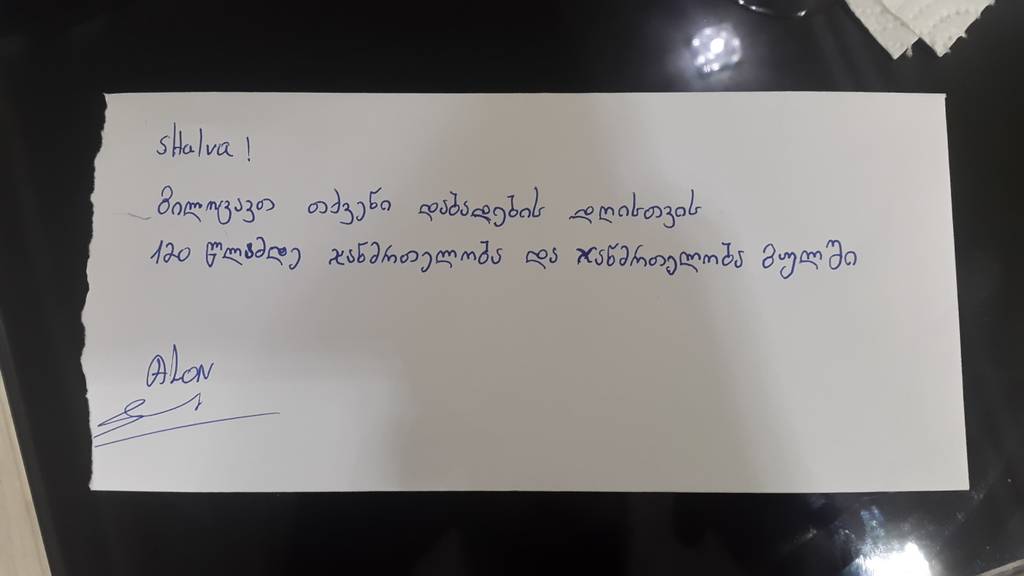 sHalva!
გილოცავთ თქვენი დაბადების დღისთვის
120 წლამდე ჯანმრთელობა და ჯანმრთელობა გულში
ALON